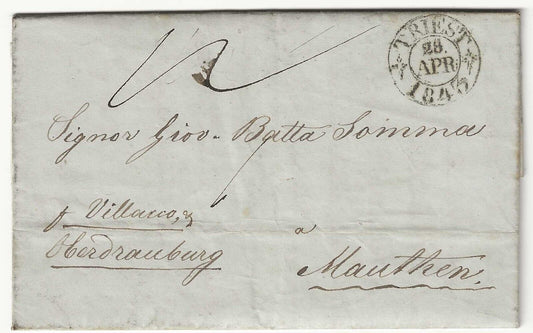 TRIEST
28
APR
184
Signor Giov. Batta Somma
p Villaco, &
Oberdrauburg
a
Mauthen.